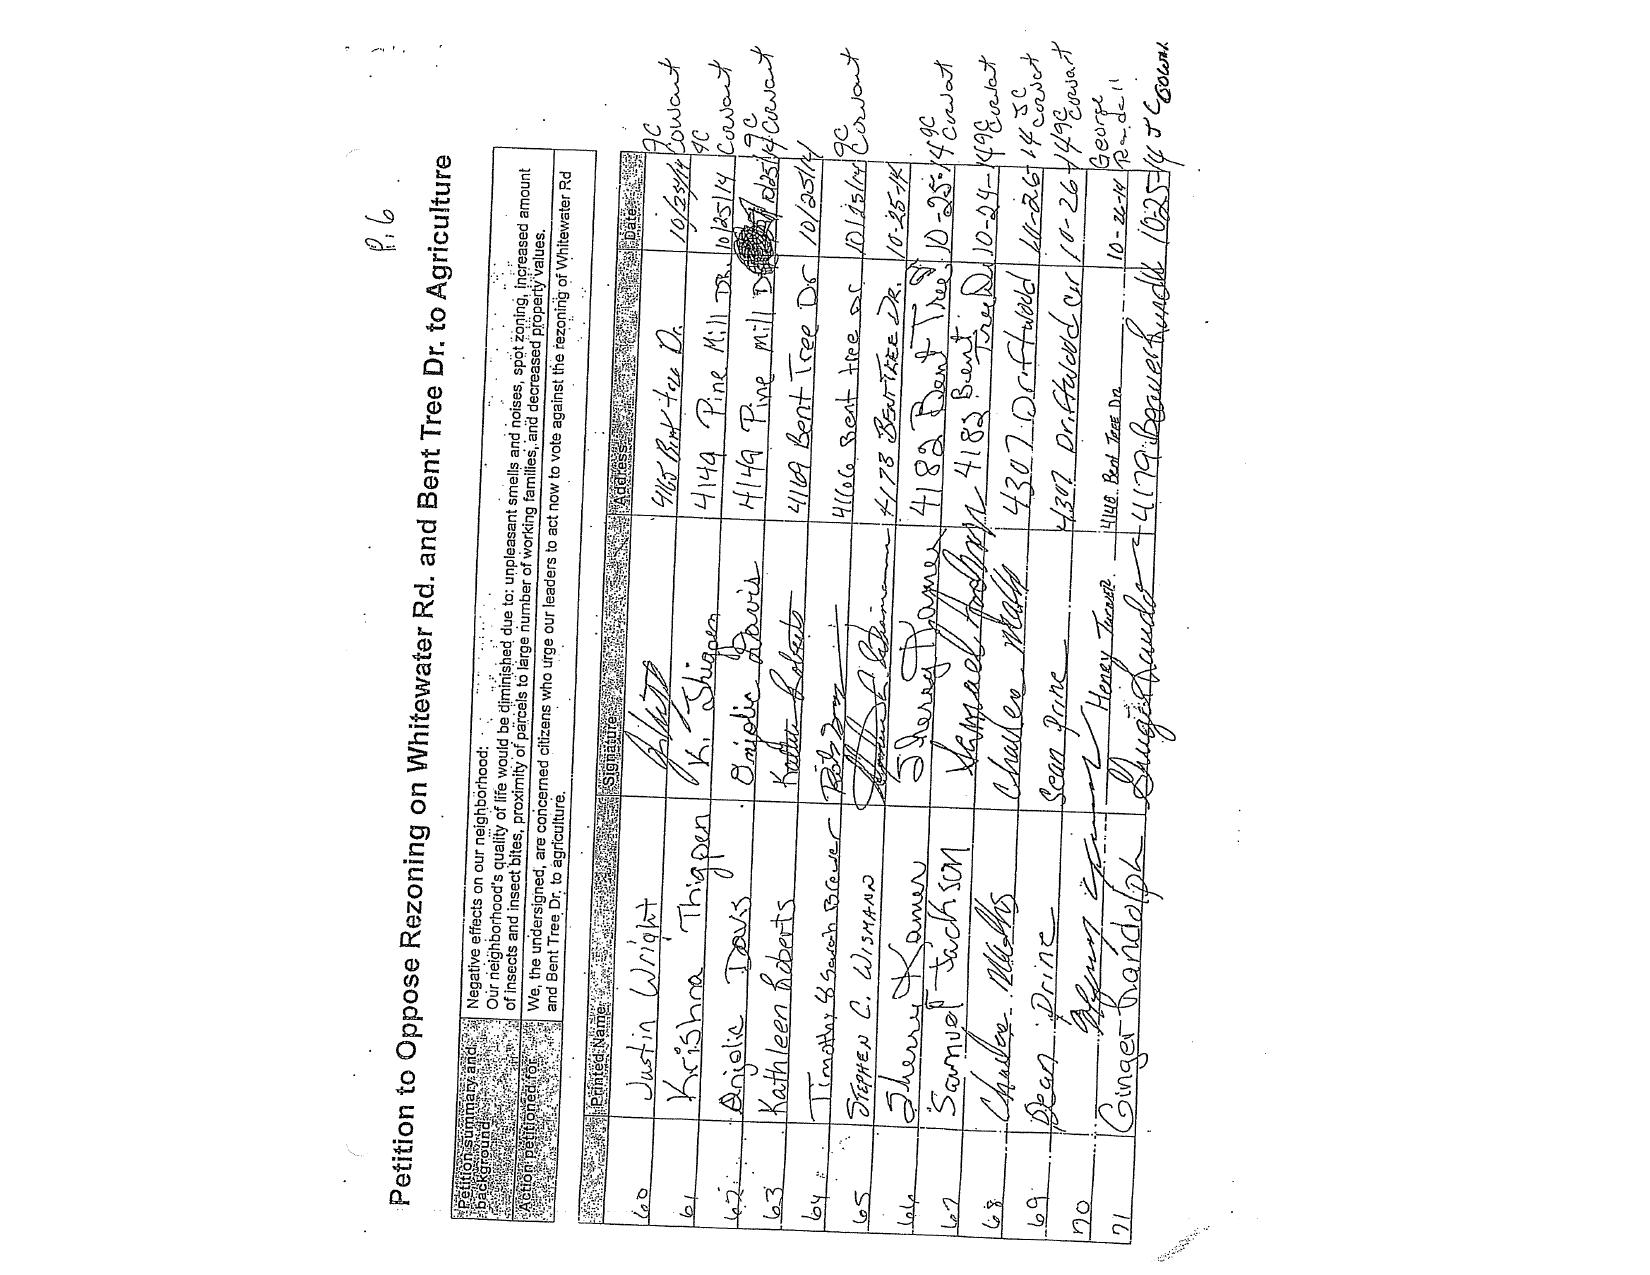 P. 6
Petition to Oppose Rezoning on Whitewater Rd. and Bent Tree Dr. to Agriculture
Petition summary and background
Negative effects on our neighborhood:
Our neighborhood's quality of life would be diminished due to: unpleasant smells and noises, spot zoning, increased amount
of insects and insect bites, proximity of parcels to large number of working families, and decreased property values.
Action petitioned for
We, the undersigned, are concerned citizens who urge our leaders to act now to vote against the rezoning of Whitewater Rd
and Bent Tree Dr. to agriculture.
Printed Name Signature Address Date
60 Justin Wright 4165 Bent tree Dr. 10/25/14 Cowart
61 Krishna Thigpen K. Thigpen 4149 Pine Mill Dr. 10/25/14 Cowart
62 Anjolic Davis Anjolic Davis 4149 Pine Mill D 10/25/14 Cowart
63 Kathleen Roberts Kathleen Roberts 4169 Bent Tree Dr 10/25/14
64 Timothy & Sarah Brewer 4166 Bent tree Dr 10/25/14 Cowart
65 STEPHEN C. WISMANN 4173 BENT TREE DR. 10-25-14
66 Sherry Kamer 4182 Bent Tree 10-25-14 Cowart
67 Samuel Jackson 4182 Bent Tree Dr 10-24-14 Cowart
68 Charles Mathis 4307 Driftwood 10-26-14 Cowart
69 Dean Prine Sean Prine 4307 Driftwood Cir 10-26-14 Cowart
70 Henry 4148 Bent Tree Dr 10-26-14 George Randall
71 Ginger Randolph 4179 Beaver Run 10-25-14